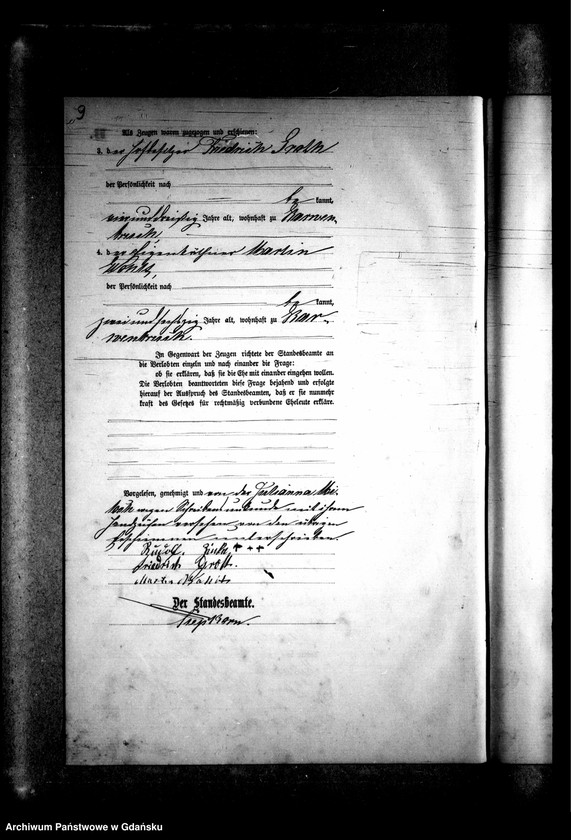 9
Als Zeugen waren zugezogen und erschienen:
3. der Hofbesitzer Friedrich Groth
der Persönlichkeit nach
be kannt,
einunddreißig Jahre alt, wohnhaft zu Karwen-
bruch,
4. der Eigenkäthner Martin
der Persönlichkeit nach
be kannt,
zweiundsechszig Jahre alt, wohnhaft zu Kar-
wenbruch.
In Gegenwart der Zeugen richtete der Standesbeamte an
die Verlobten einzeln und nach einander die Frage:
ob sie erklären, daß sie die Ehe mit einander eingehen wollen.
Die Verlobten beantworteten diese Frage bejahend und erfolgte
hierauf der Ausspruch des Standesbeamten, daß er sie nunmehr
kraft des Gesetzes für rechtmäßig verbundene Eheleute erkläre.
Vorgelesen, genehmigt und von der Julianna
wegen Schreibensunkunde mit ihrem
Handzeichen versehen von den übrigen
Erschienenen unterschrieben.
Rudolf +++
Friedrich Grott.
Martin
Der Standesbeamte.
Archiwum Państwowe w Gdańsku